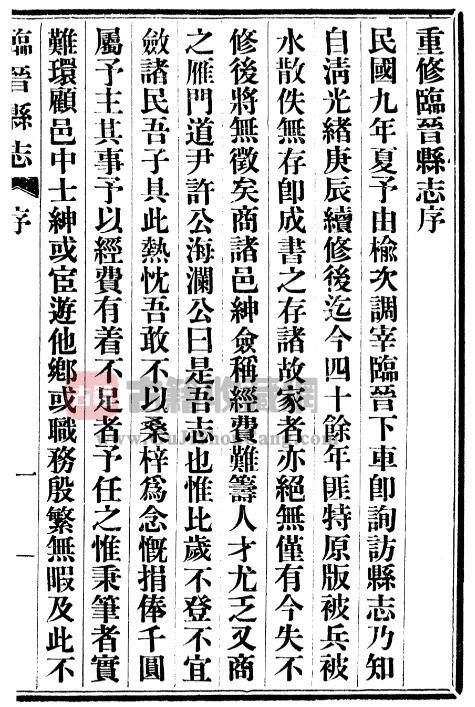 重修臨晉縣志序
民國九年夏予由榆次調宰臨晉下車卽詢訪縣志乃知
自淸光緒庚辰續修後迄今四十餘年匪特原版被兵被
水散佚無存卽成書之存諸故家者亦絕無僅有今失不
修後將無徵矣商諸邑紳僉稱經費難籌人才尤乏又商
之雁門道尹許公海瀾公曰是吾志也惟比歲不登不宜
斂諸民吾子具此熱忱吾敢不以桑梓爲念慨捐俸千圓
屬予主其事予以經費有着不足者予任之惟秉筆者實
難環顧邑中士紳或宦遊他鄕或職務殷繁無暇及此不
臨晉縣志 序 一